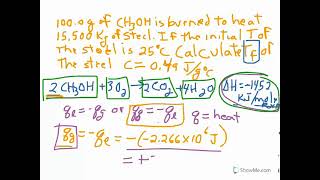 100.0g of CH3OH is burned to heat
15,500 Kg of steel. If the initial T of
the steel is 25°C Calculate Tf of
the steel C = 0.49 J/g°C
2 CH3OH + 3O2 → 2CO2 + 4H2O ΔH = -1453
KJ/mol
qe = -qs or qs = -qe q = heat
qs = -qe = -(-2.266x10⁶ J)
= +
ShowMe.com